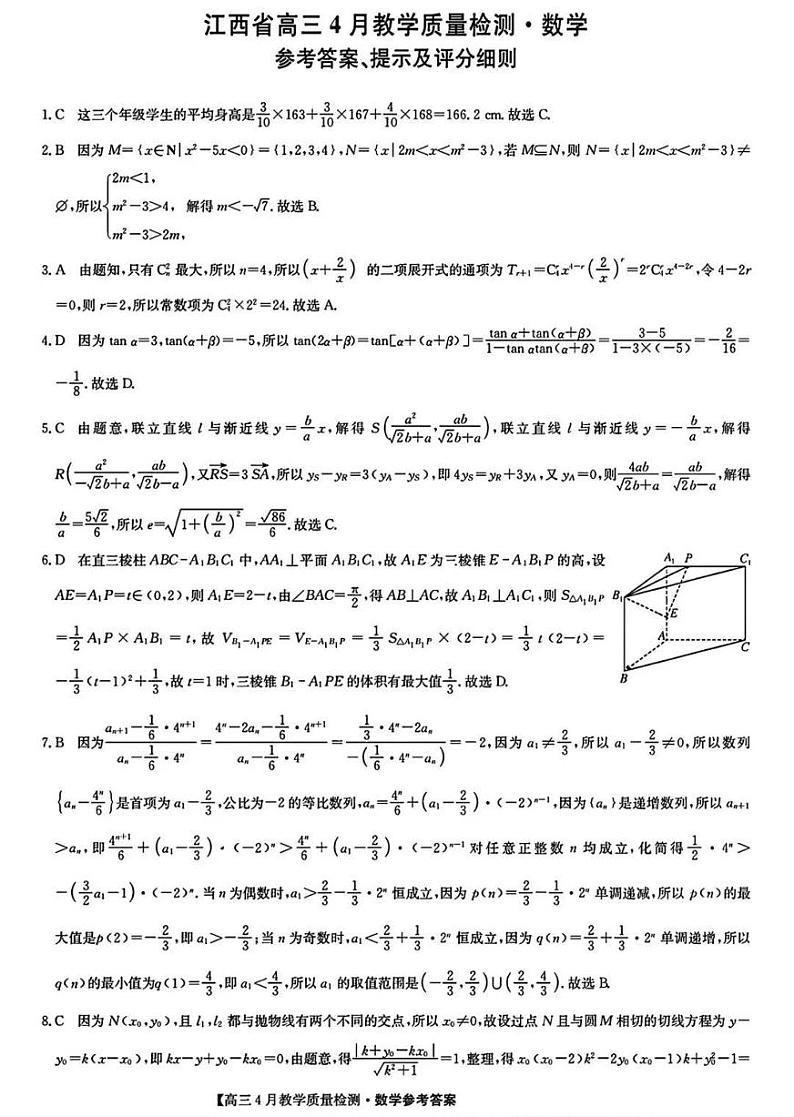 江西省高三4月教学质量检测·数学
参考答案、提示及评分细则
1. C 这三个年级学生的平均身高是3/10×163+3/10×167+4/10×168=166.2 cm. 故选 C.
2. B 因为 M={x∈N|x²-5x<0}={1,2,3,4},N={x|2m<x<m²-3},若 M⊆N,则 N={x|2m<x<m²-3}≠
∅,所以{2m<1, m²-3>4, m²-3>2m, 解得 m<-√7. 故选 B.
3. A 由题知,只有 C²ₙ 最大,所以 n=4,所以(x+2/x) 的二项展开式的通项为 Tᵣ₊₁=C₄ʳx⁴⁻ʳ(2/x)ʳ=2ʳC₄ʳx⁴⁻²ʳ,令 4-2r
=0,则 r=2,所以常数项为 C₄²×2²=24. 故选 A.
4. D 因为 tan α=3,tan(α+β)=-5,所以 tan(2α+β)=tan[α+(α+β)]=(tan α+tan(α+β))/(1-tan αtan(α+β))=(3-5)/(1-3×(-5))=-2/16=
-1/8. 故选 D.
5. C 由题意,联立直线 l 与渐近线 y=b/a x,解得 S(a²/(√2b+a), ab/(√2b+a)),联立直线 l 与渐近线 y=-b/a x,解得
R(a²/(-√2b+a), ab/(√2b-a)),又RS→=3SA→,所以 y_S-y_R=3(y_A-y_S),即 4y_S=y_R+3y_A,又 y_A=0,则4ab/(√2b+a)=ab/(√2b-a),解得
b/a=5√2/6,所以 e=√(1+(b/a)²)=√86/6. 故选 C.
6. D 在直三棱柱 ABC-A₁B₁C₁ 中,AA₁⊥平面 A₁B₁C₁,故 A₁E 为三棱锥 E-A₁B₁P 的高,设
AE=A₁P=t∈(0,2),则 A₁E=2-t,由∠BAC=π/2,得 AB⊥AC,故 A₁B₁⊥A₁C₁,则 S△A₁B₁P
=1/2 A₁P×A₁B₁=t,故 V_{B₁-A₁PE}=V_{E-A₁B₁P}=1/3 S△A₁B₁P×(2-t)=1/3 t(2-t)=
-1/3(t-1)²+1/3,故 t=1 时,三棱锥 B₁-A₁PE 的体积有最大值1/3. 故选 D.
A₁ P C₁
B₁
E
A
C
B
7. B 因为(aₙ₊₁-1/6·4ⁿ⁺¹)/(aₙ-1/6·4ⁿ)=(4ⁿ-2aₙ-1/6·4ⁿ⁺¹)/(aₙ-1/6·4ⁿ)=(1/3·4ⁿ-2aₙ)/(-(1/6·4ⁿ-aₙ))=-2,因为 a₁≠2/3,所以 a₁-2/3≠0,所以数列
{aₙ-4ⁿ/6}是首项为 a₁-2/3,公比为-2 的等比数列,aₙ=4ⁿ/6+(a₁-2/3)·(-2)ⁿ⁻¹,因为{aₙ}是递增数列,所以 aₙ₊₁
>aₙ,即4ⁿ⁺¹/6+(a₁-2/3)·(-2)ⁿ>4ⁿ/6+(a₁-2/3)·(-2)ⁿ⁻¹ 对任意正整数 n 均成立,化简得1/2·4ⁿ>
-(3/2 a₁-1)·(-2)ⁿ. 当 n 为偶数时,a₁>2/3-1/3·2ⁿ 恒成立,因为 p(n)=2/3-1/3·2ⁿ 单调递减,所以 p(n)的最
大值是p(2)=-2/3,即 a₁>-2/3;当 n 为奇数时,a₁<2/3+1/3·2ⁿ 恒成立,因为 q(n)=2/3+1/3·2ⁿ 单调递增,所以
q(n)的最小值为q(1)=4/3,即 a₁<4/3,所以 a₁ 的取值范围是(-2/3,2/3)∪(2/3,4/3). 故选 B.
8. C 因为 N(x₀,y₀),且 l₁,l₂ 都与抛物线有两个不同的交点,所以 x₀≠0,故设过点 N 且与圆 M 相切的切线方程为 y-
y₀=k(x-x₀),即 kx-y+y₀-kx₀=0,由题意,得|k+y₀-kx₀|/√(k²+1)=1,整理,得 x₀(x₀-2)k²-2y₀(x₀-1)k+y₀²-1=
【高三4月教学质量检测·数学参考答案